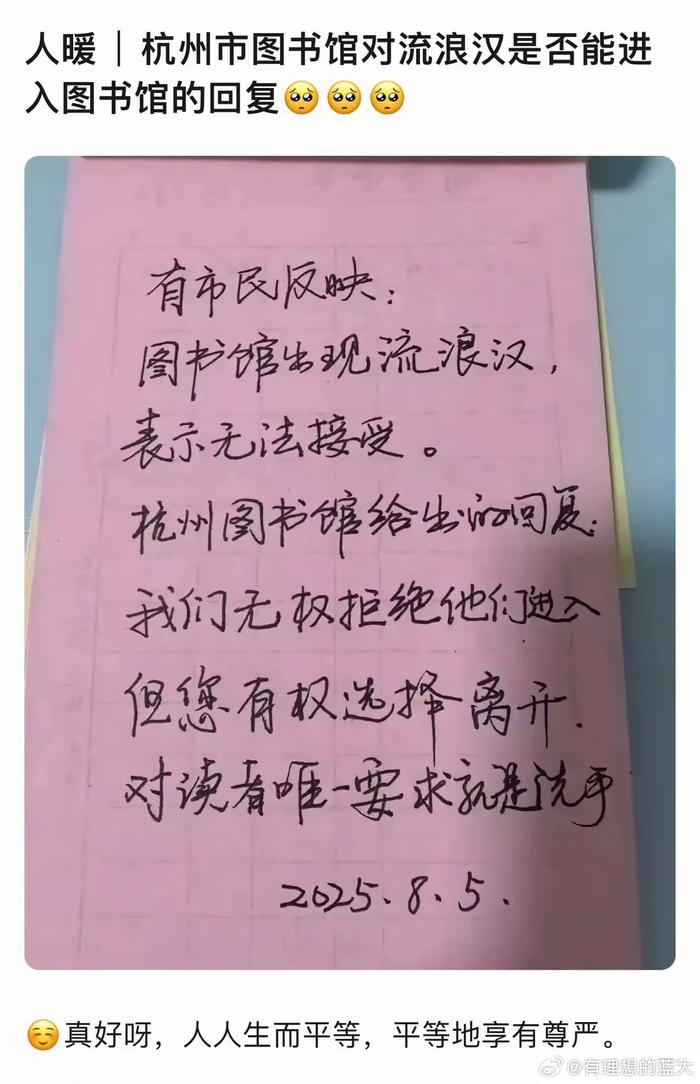 人暖｜杭州市图书馆对流浪汉是否能进
入图书馆的回复🥺🥺🥺
有市民反映：
图书馆出现流浪汉，
表示无法接受。
杭州图书馆给出的回复：
我们无权拒绝他们进入
但您有权选择离开.
对读者唯一要求就是洗手
2025.8.5.
☺️真好呀，人人生而平等，平等地享有尊严。
@有理想的蓝大